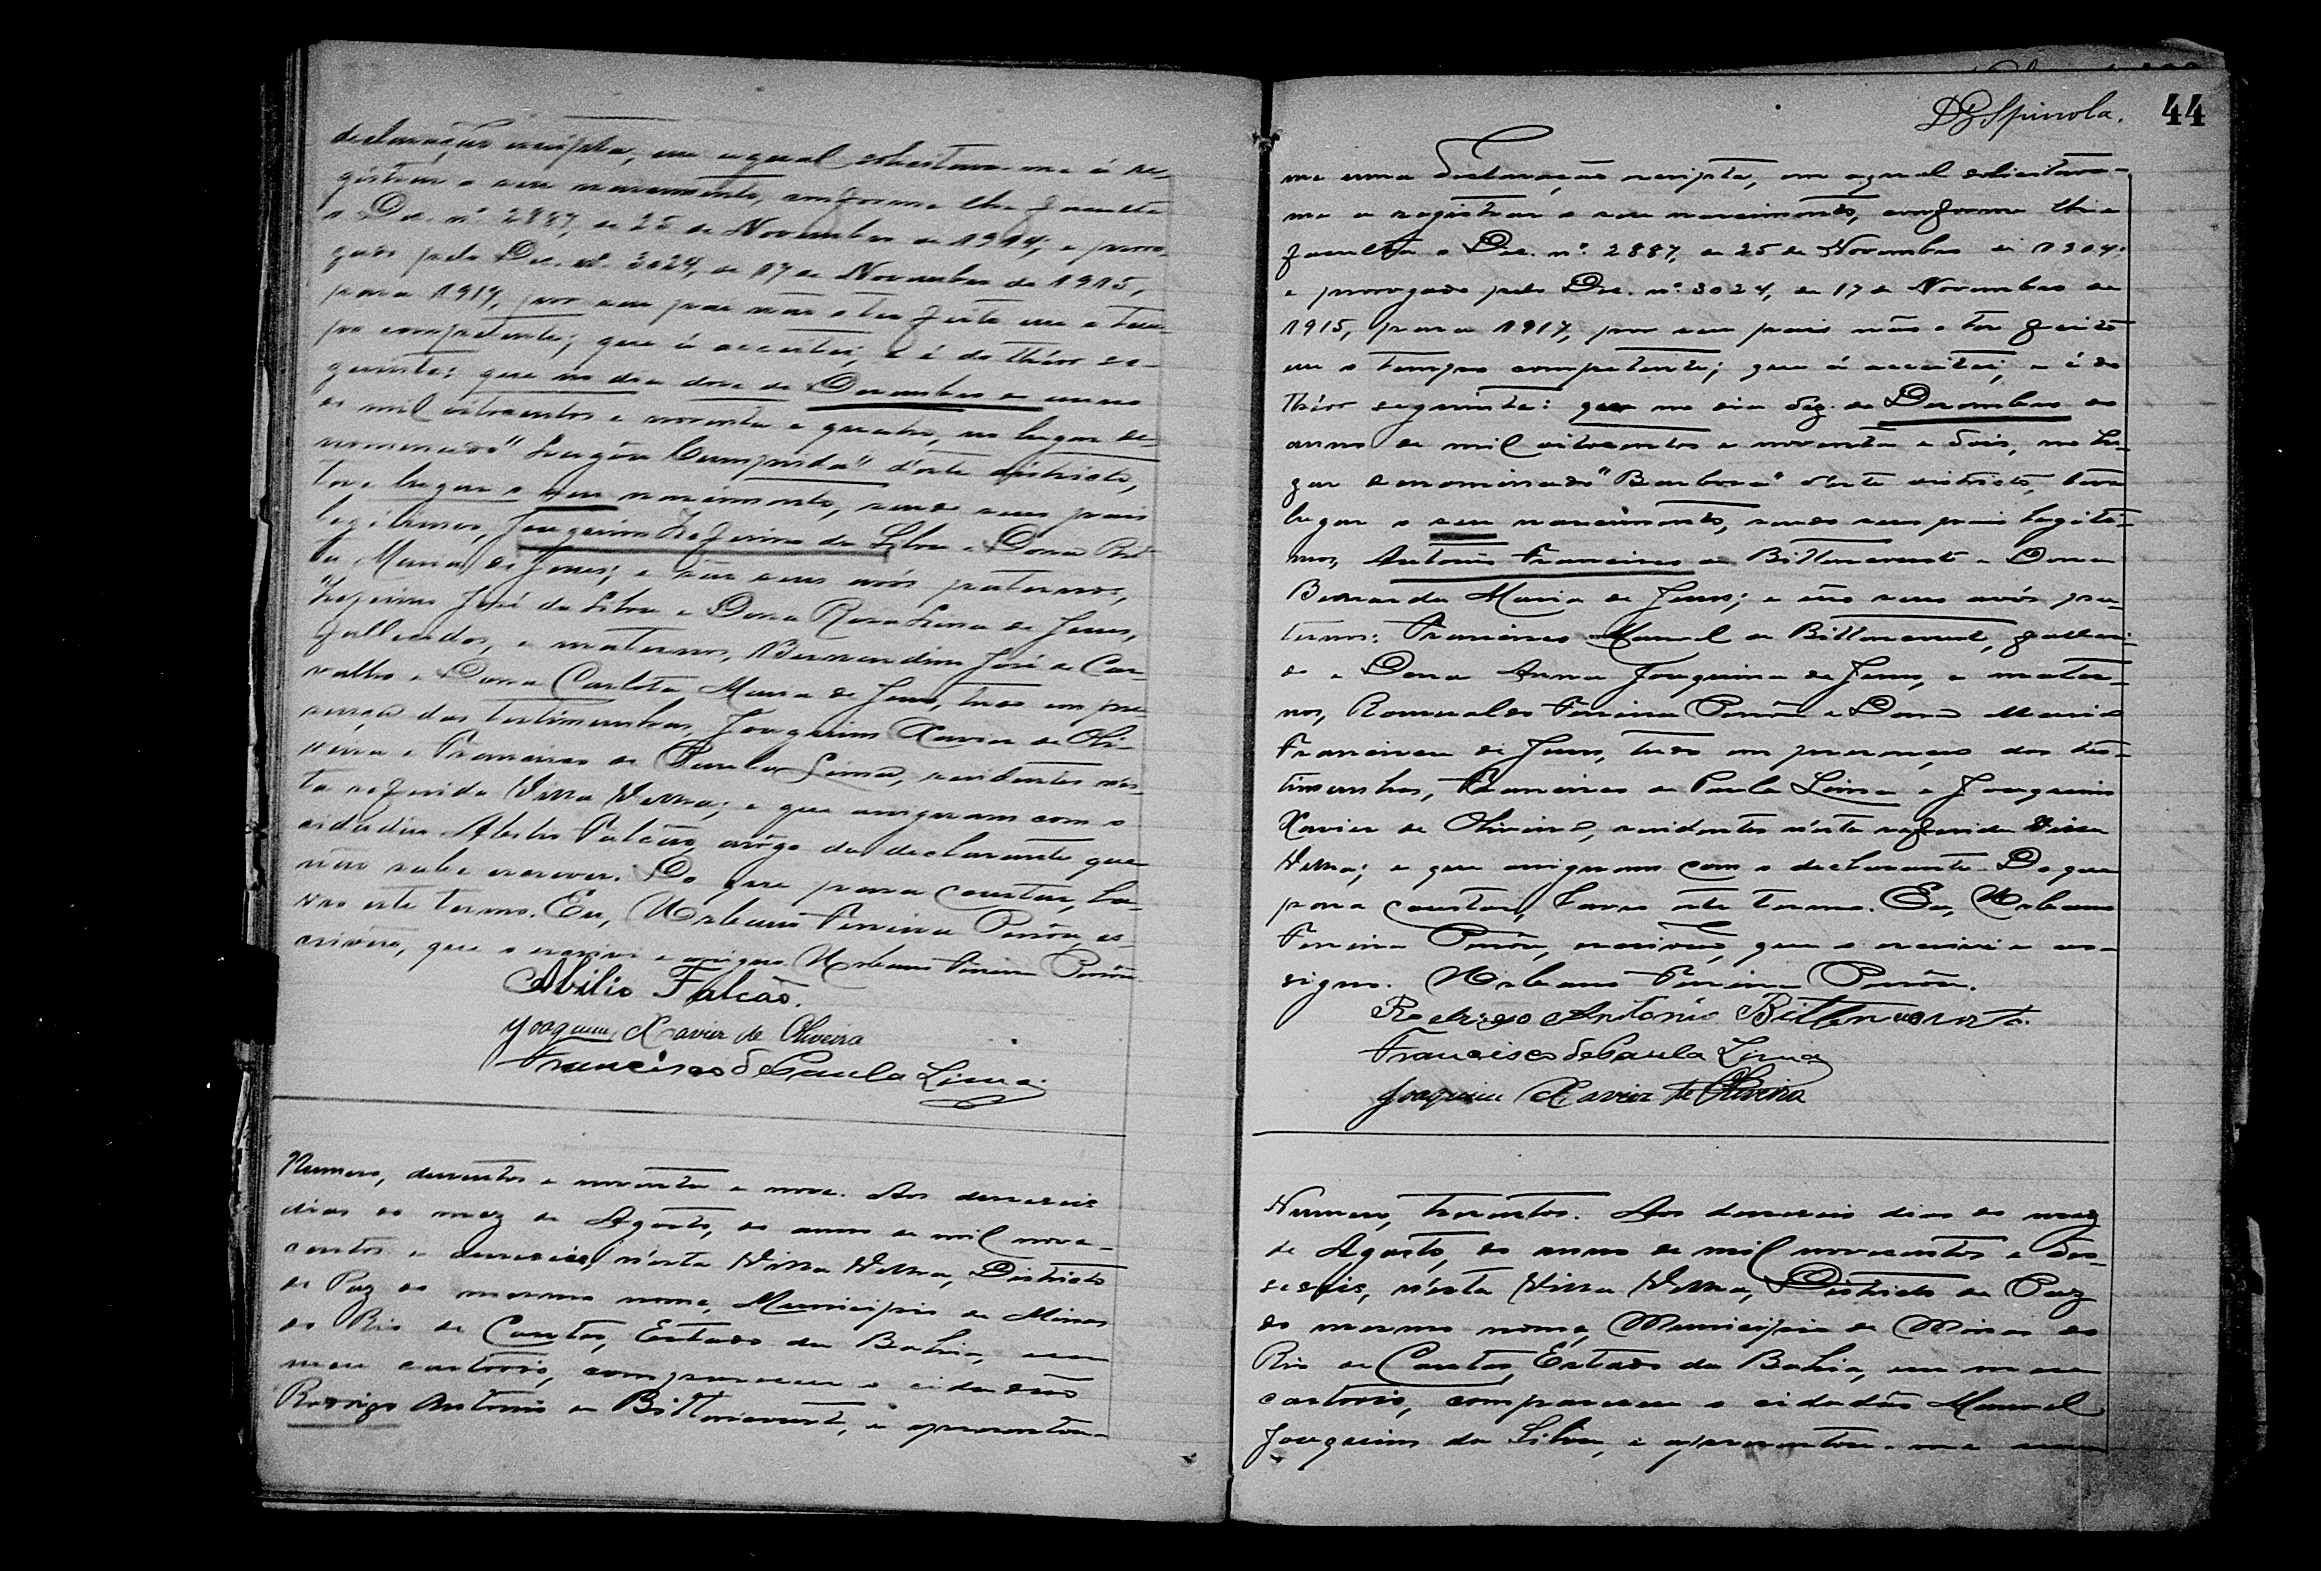 declaração escripta, em a qual solicitava-me á re-
gistrar o seu nascimento, conforme lhe faculta
o Dec. nº 2887, de 25 de Novembro de 1914; e proro-
gado pelo Dec. nº 3024, de 17 de Novembro de 1915,
para 1917, por seu pae não o ter feito em o tem-
po competente; que á acceitei; e é do théor se-
guinte: que no dia doze de Dezembro do anno
de mil oitocentos e noventa e quatro, no lugar de-
nominado "Lagôa Comprida" d'este districto,
teve lugar o seu nascimento, sendo seus paes
legitimos, Joaquim Zeferino da Silva e Dona Ri-
ta Maria de Jesus; e são seus avós paternos,
Zeferino José da Silva e Dona Rosa Lina de Jesus,
fallecidos, e maternos, Bernardino José de Car-
valho e Dona Carlota Maria de Jesus, tudo em pre-
sença das testimunhas, Joaquim Xavier de Oli-
veira e Francisco de Paula Lima, residentes nes-
ta referida Villa Velha; e que assignam com o
cidadão Abilio Falcão, arôgo do declarante que
não sabe escrever. Do que para constar, la-
vro este termo. Eu, Urbano Ferreira Porrôa, es-
crivão, que o escrevi e assigno. Urbano Ferreira
Abilio Falcão.
Joaquim Xavier de Oliveira
Francisco de Paula Lima.
Numero, duzentos e noventa e nove. Aos dezeseis
dias do mez de Agosto, do anno de mil nove-
centos e dezeseis, n'esta Villa Velha, Districto
de Paz do mesmo nome, Municipio de Minas
do Rio de Contas, Estado da Bahia, em
meu cartorio, compareceu o cidadão
Rodrigo Antonio de Bittencourt, e apresentou-
D Spinola. 44
me uma declaração escripta, em a qual solicitava-
me a registrar o seu nascimento, conforme lhe
faculta o Dec. nº 2887, de 25 de Novembro de 1904;
e prorogado pelo Dec. nº 3024, de 17 de Novembro de
1915, para 1917, por seu pais não o ter feito
em o tempo competente; que á acceitei; e é do
théor seguinte: que no dia dez de Dezembro do
anno de mil oitocentos e noventa e dois, no lu-
gar denominado "Barbosa" d'este districto, teve
lugar o seu nascimento, sendo seus pais legiti-
mos, Antonio Francisco de Bittencourt e Dona
Bernarda Maria de Jesus; e são seus avós pa-
ternos: Francisco Manoel de Bittencourt, falleci-
do e Dona Anna Joaquina de Jesus, e mater-
nos, Romualdo Ferreira e Dona Maria
Francisca de Jesus, tudo em presença das tes-
timunhas, Francisco de Paula Lima e Joaquim
Xavier de Oliveira, residentes n'esta referida Villa
Velha; e que assignam com o declarante. Do que
para constar, lavro este termo. Eu, Urbano
Ferreira, escrivão, que o escrevi e as-
signo. Urbano Ferreira
Rodrigo Antonio Bittencourt.
Francisco de Paula Lima
Joaquim Xavier de Oliveira
Numero, trezentos. Aos dezeseis dias do mez
de Agosto, do anno de mil novecentos e des-
eseis, n'esta Villa Velha, Districto de Paz
do mesmo nome, Municipio de Minas do
Rio de Contas, Estado da Bahia, em meu
cartorio, compareceu o cidadão Manoel
Joaquim da Silva, e apresentou-me uma